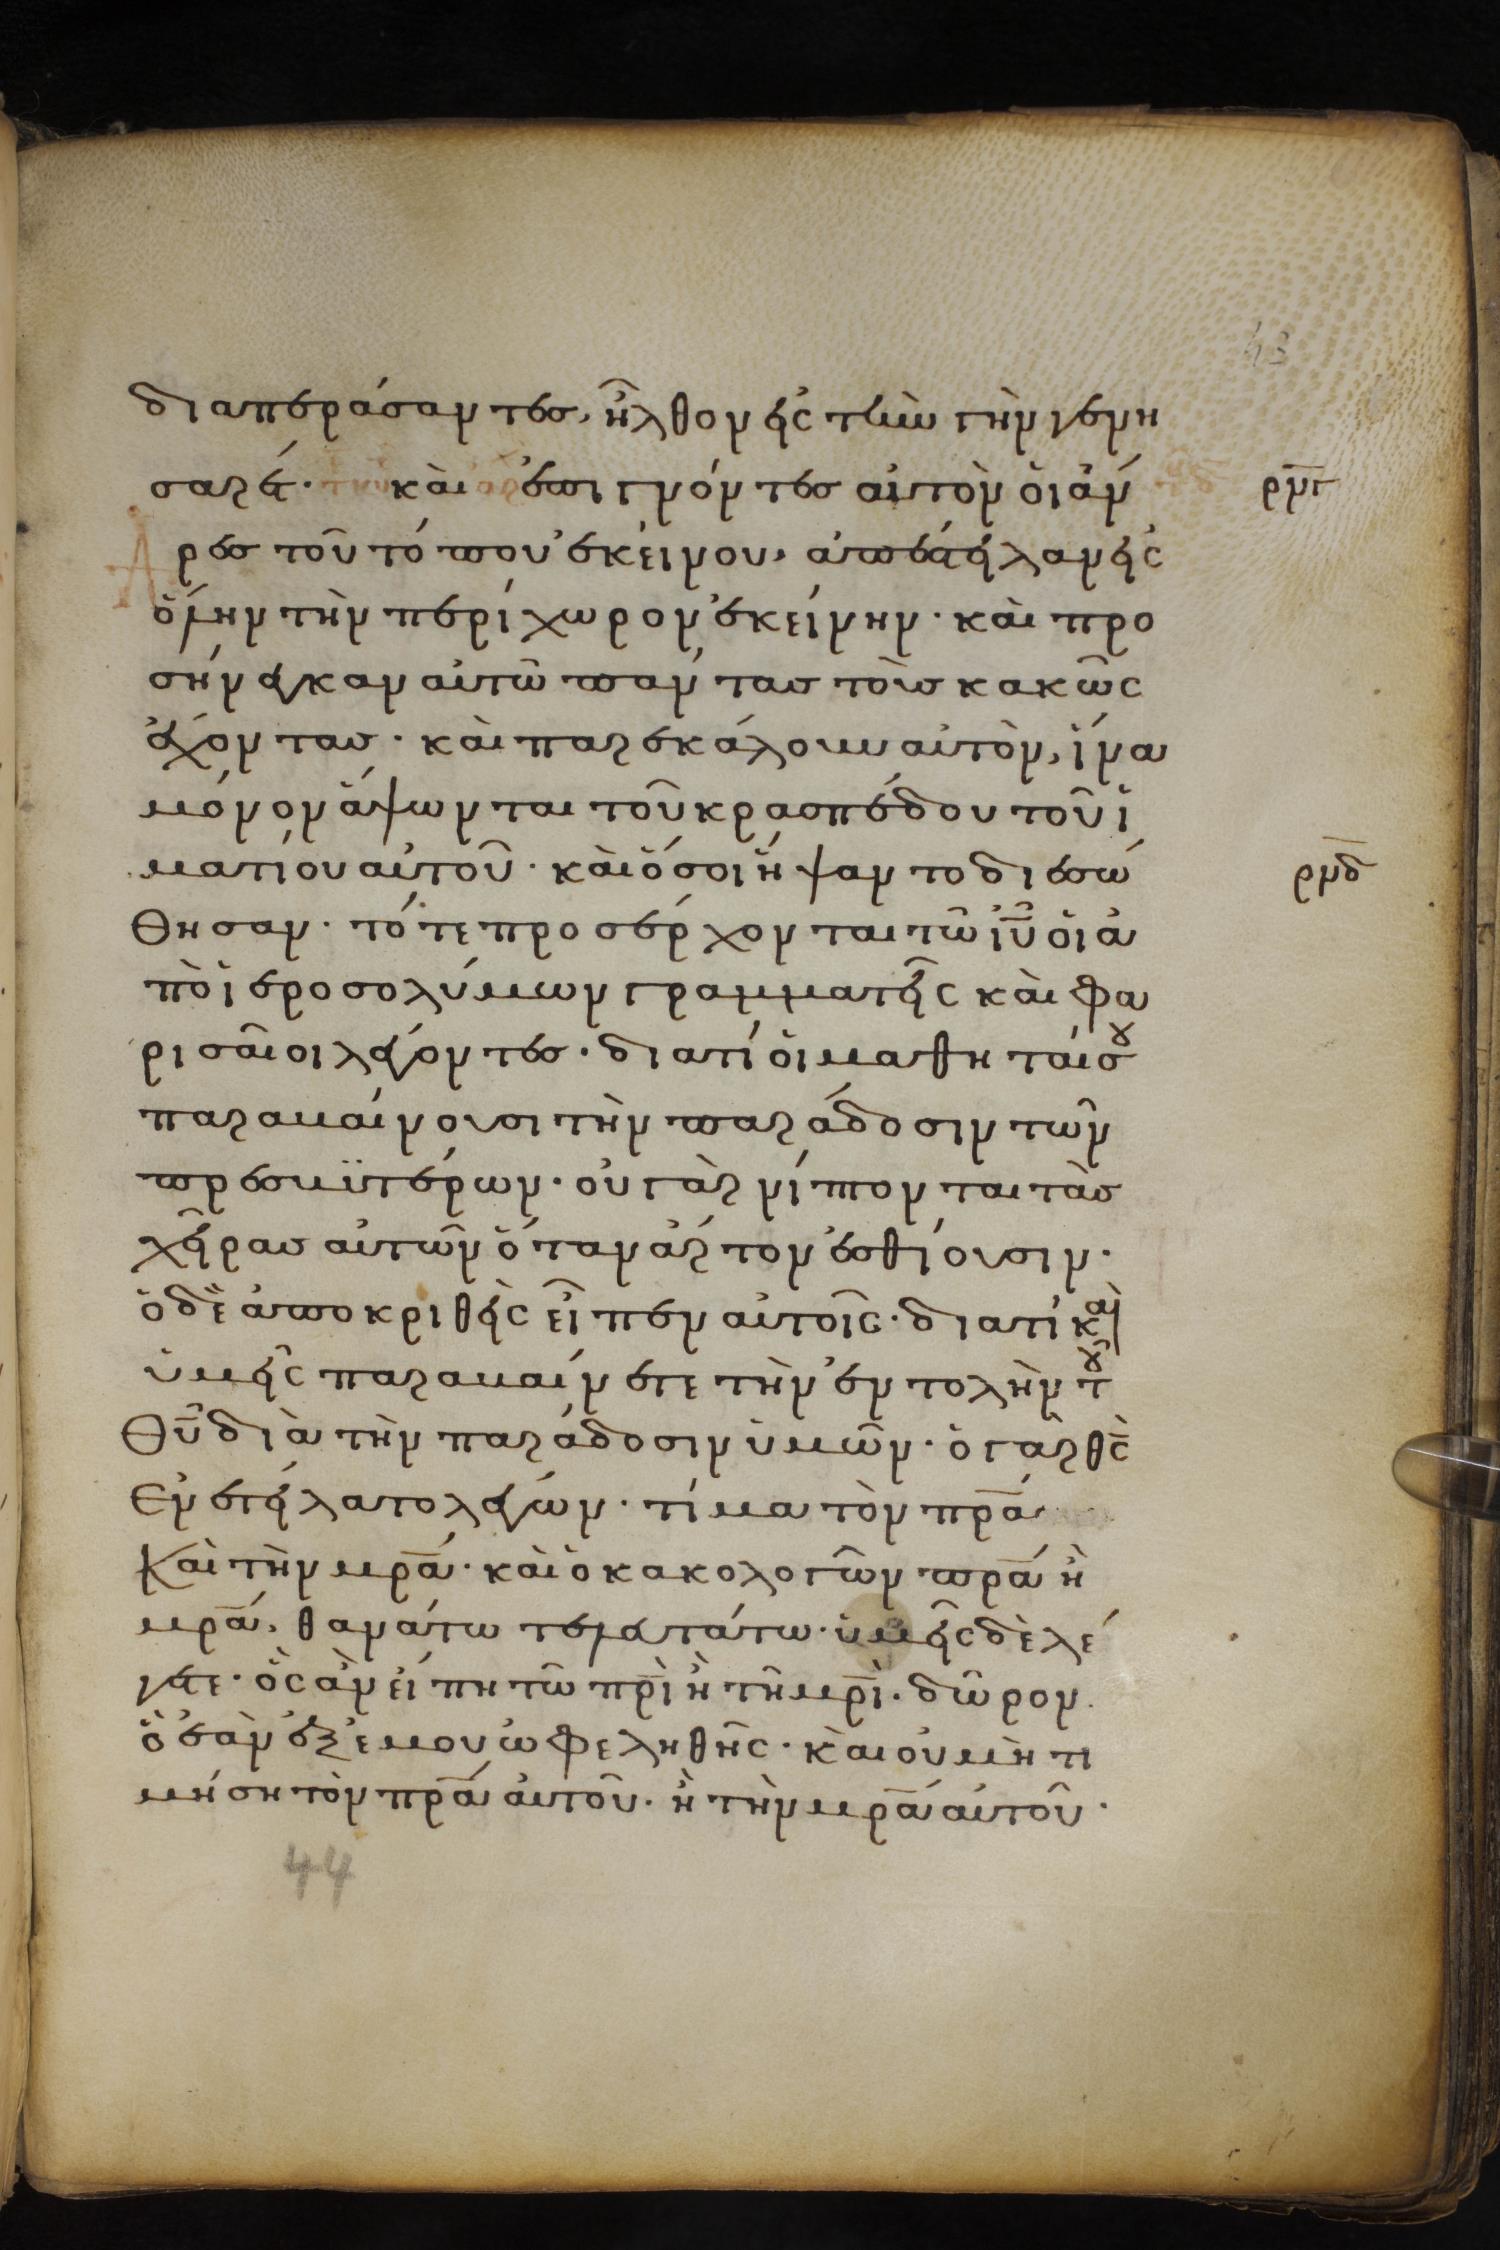 43
διαπεράσαντες, ἦλθον εἰς τὴν γὴν γενη
σαρέτ· καὶ ἐπιγνόντες αὐτὸν ὁι ἄν
ρμγ
ρες τοῦ τόπου ἐκείνου, ἀπέστειλαν εἰς
ὅλην τὴν περίχωρον ἐκείνην· καὶ προ
σήνεγκαν αὐτῶ πάντας τοὺς κακῶς
ἔχοντας· καὶ παρεκάλουν αὐτὸν, ἵνα
μόνον ἅψωνται τοῦ κρασπέδου τοῦ ἱ
ματίου αὐτοῦ· καὶ ὅσοι ἥψαντο διεσώ
ρμδ
θησαν· τότε προσέρχονται τῶ ἰῦ ὁι ἀ
πὸ ἱεροσολύμων γραμματεῖς καὶ φα
ρισαῖοι λέγοντες· διατί ὁι μαθηταί σου
παραβαίνουσι τὴν παράδοσιν τῶν
πρεσβϋτέρων· οὐ γὰρ νίπτονται τὰς
χεῖρας αὐτῶν ὅταν ἄρτον ἐσθίουσιν·
ὁ δὲ ἀποκριθεὶς εἶπεν αὐτοῖς· διατί καὶ
ὑμεῖς παραβαίνετε τὴν ἐντολὴν τοῦ
θῦ διὰ τὴν παράδοσιν ὑμῶν· ὁ γὰρ θς
ἐνετείλατο λέγων· τίμα τὸν πρα
καὶ τὴν μρα· καὶ ὁ κακολογῶν πρα ἢ
μρα, θανάτω τελευτάτω· ὑμεῖς δὲ λέ
γετε· ὃς ἂν εἴπη τῶ πρὶ ἢ τῆ μρὶ· δῶρον
ὃ ἐὰν ἐξ ἐμοῦ ὠφεληθῆς· καὶ οὐ μὴ τι
μήση τὸν πρα αὐτοῦ· ἢ τὴν μρα αὐτοῦ·
44